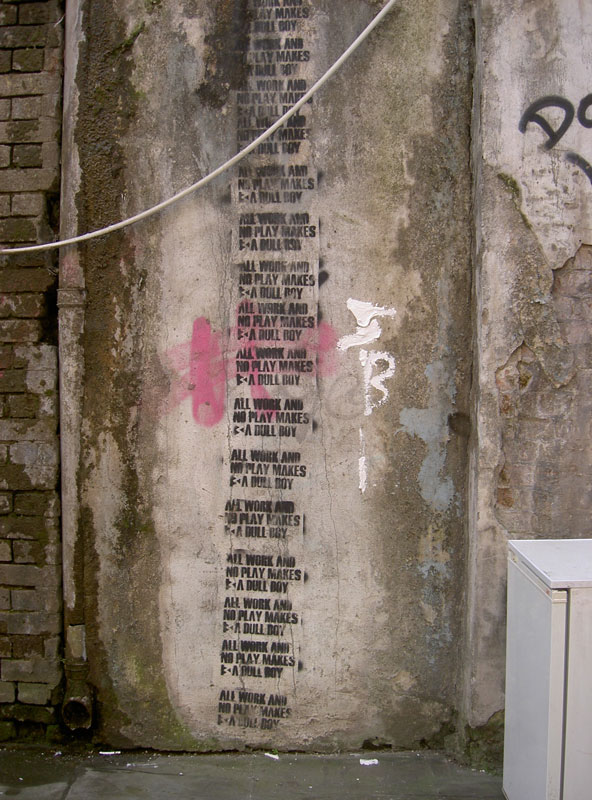 NO PLAY MAKES
A DULL BOY
ALL WORK AND
NO PLAY MAKES
A DULL BOY
ALL WORK AND
NO PLAY MAKES
ALL WORK AND
NO PLAY MAKES
A DULL BOY
ALL WORK AND
NO PLAY MAKES
A DULL BOY
ALL WORK AND
NO PLAY MAKES
A DULL BOY
ALL WORK AND
NO PLAY MAKES
A DULL BOY
ALL WORK AND
NO PLAY MAKES
A DULL BOY
ALL WORK AND
NO PLAY MAKES
A DULL BOY
ALL WORK AND
NO PLAY MAKES
A DULL BOY
ALL WORK AND
NO PLAY MAKES
A DULL BOY
ALL WORK AND
NO PLAY MAKES
A DULL BOY
ALL WORK AND
NO PLAY MAKES
A DULL BOY
ALL WORK AND
NO PLAY MAKES
A DULL BOY
ALL WORK AND
NO PLAY MAKES
A DULL BOY
ALL WORK AND
NO PLAY MAKES
A DULL BOY